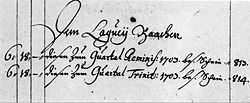 Dem Laquey Baachen
6. 18. — diesen zum Quartal Reminis: 1703. bes. Schein — 813.
6. 18. — diesen zum Quartal Trinit: 1703. bes. Schein — 814.